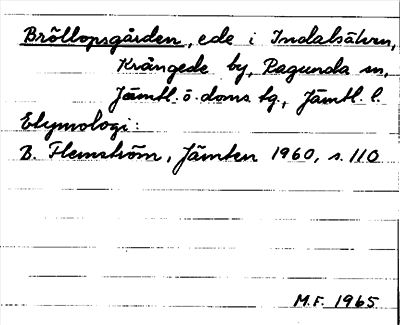 Bröllopsgården, ede i Indalsälven,
Krångede by, Ragunda sn,
Jämtl. ö. doms. tg., Jämtl. l.
Etymologi:
B. Flemström, Jämten 1960, s. 110
M.F. 1965